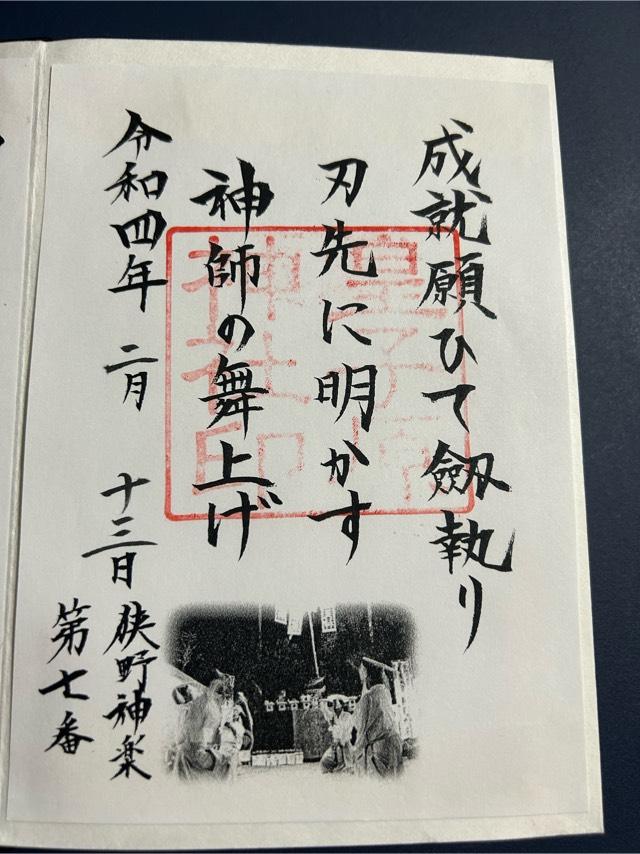 成就願ひて劔執り
刃先に明かす
神師の舞上げ
令和四年 二月 十三日
狭野神楽
第七番
皇子原
神社印